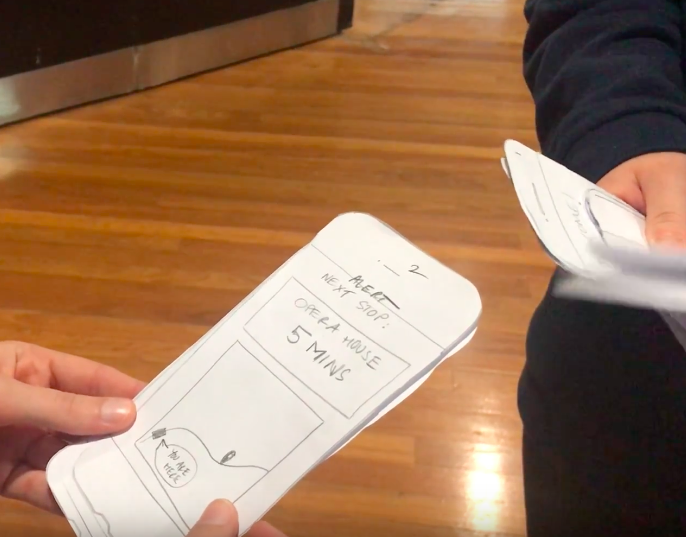 2
ALERT
NEXT STOP:
OPERA HOUSE
5 MINS
YOU ARE
HERE